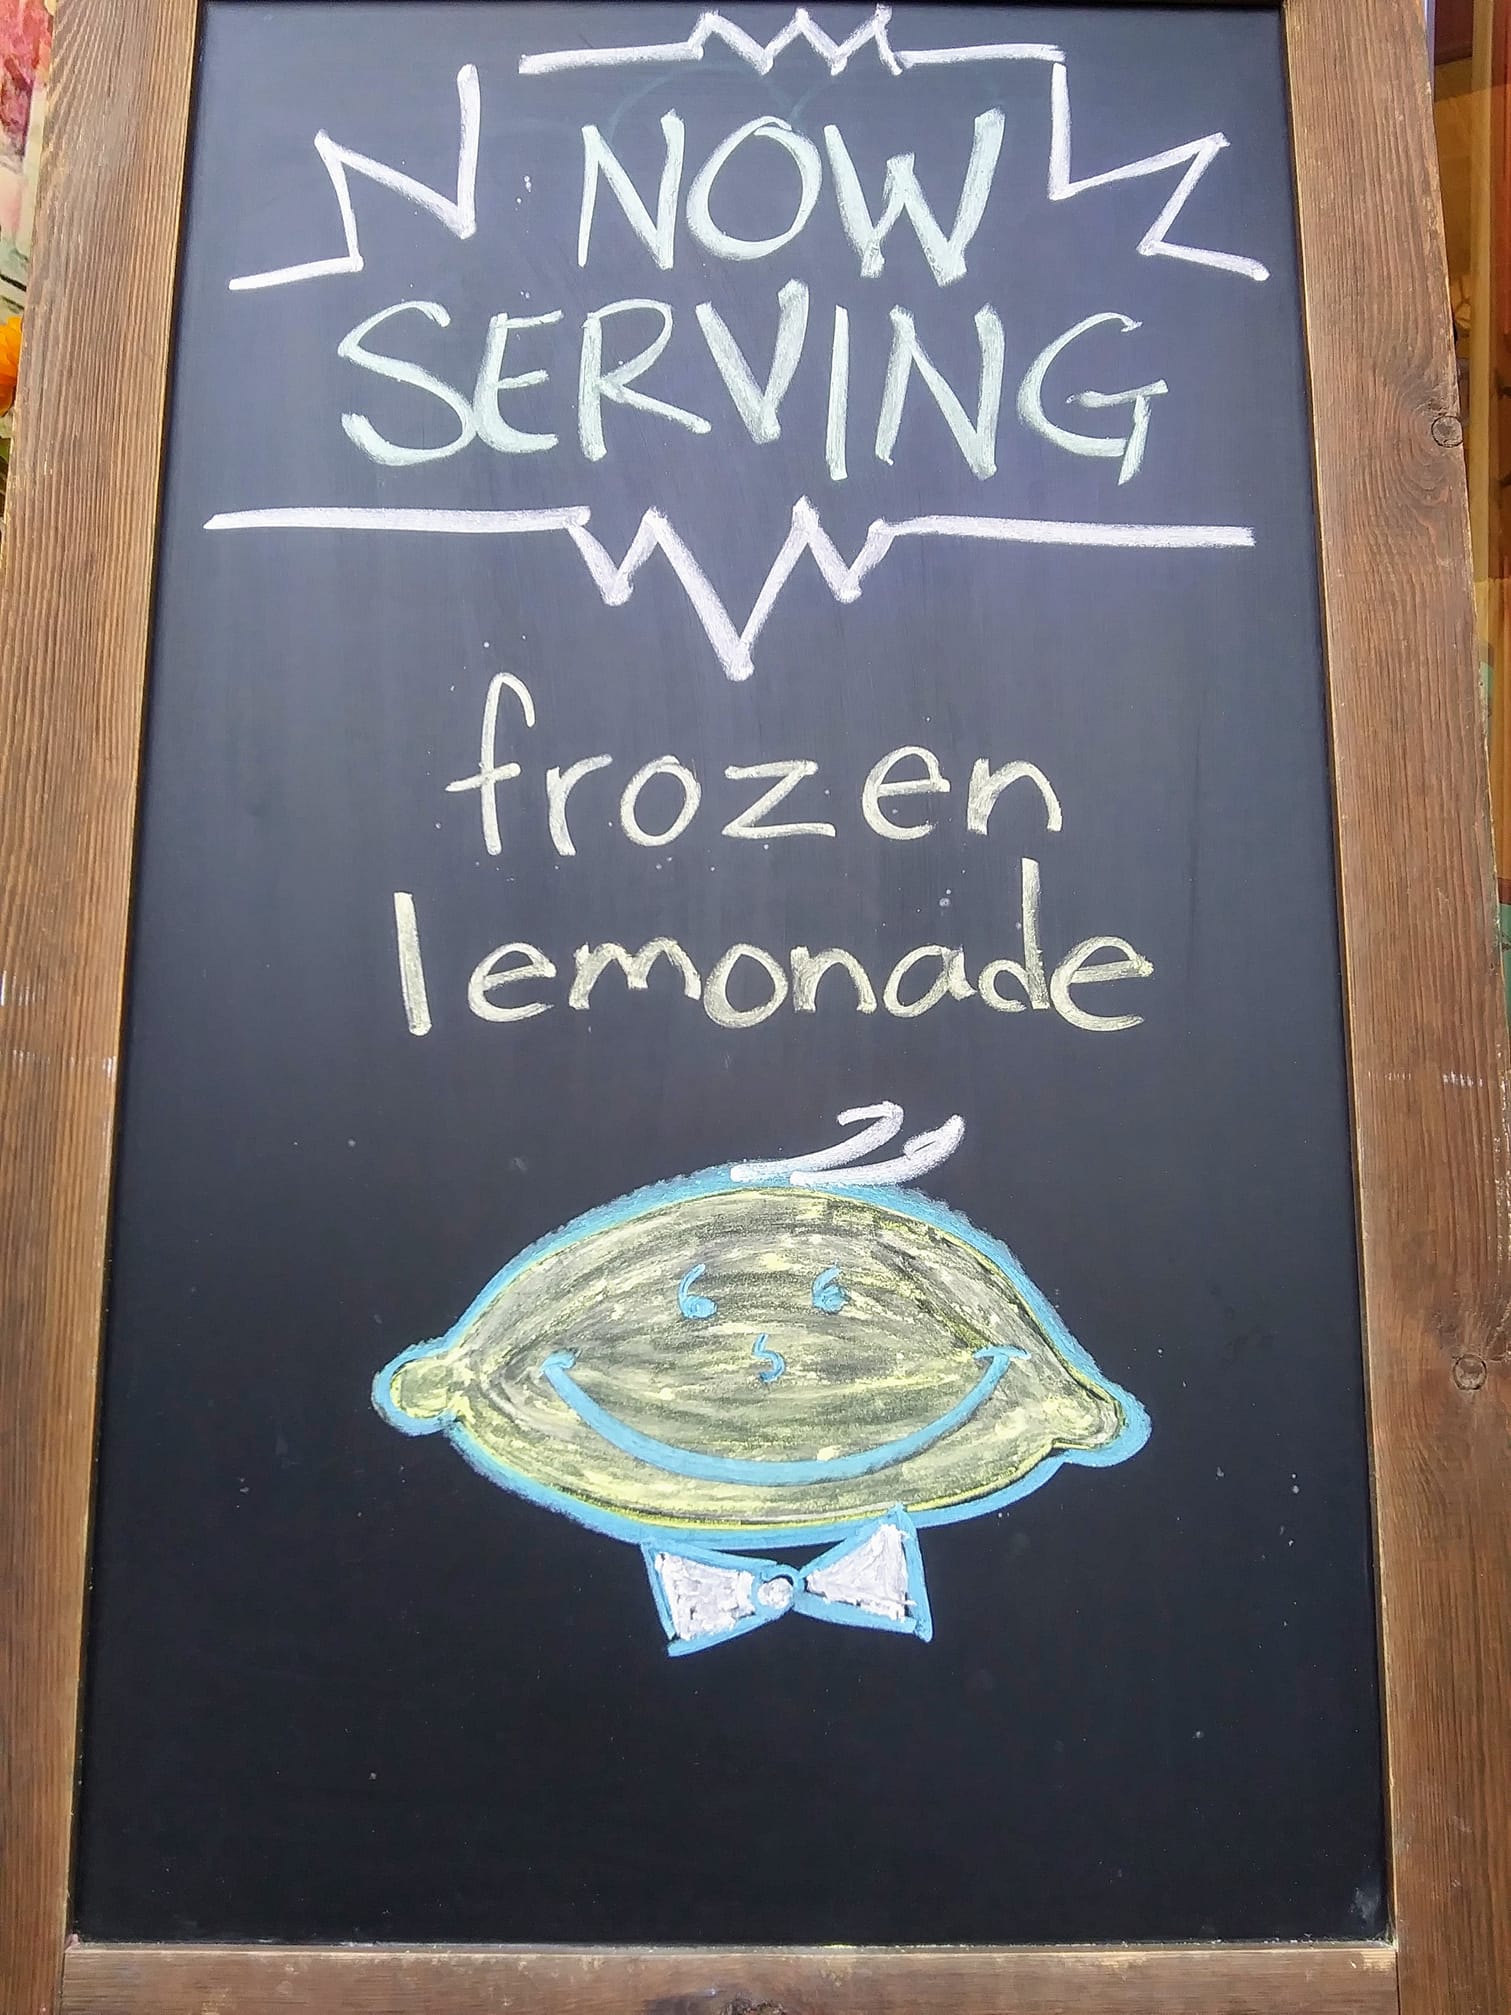 NOW
SERVING
frozen
lemonade